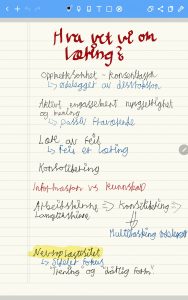 Hva vet vi om
læring?
Oppmerksomhet - konsentrasjon
↳ ødelegges av distraksjon
Aktivt engasjement nysgjerrighet
og mening
↳ passiv fraværende
Lære av feil
↳ feil er læring
Konsolidering
Informasjon vs kunnskap
Arbeidsminne → Konsolidering →
Langtidsminne
Multitasking ødelegger
Nevroplastisitet
↳ fokus
"Trening" og "dårlig form"